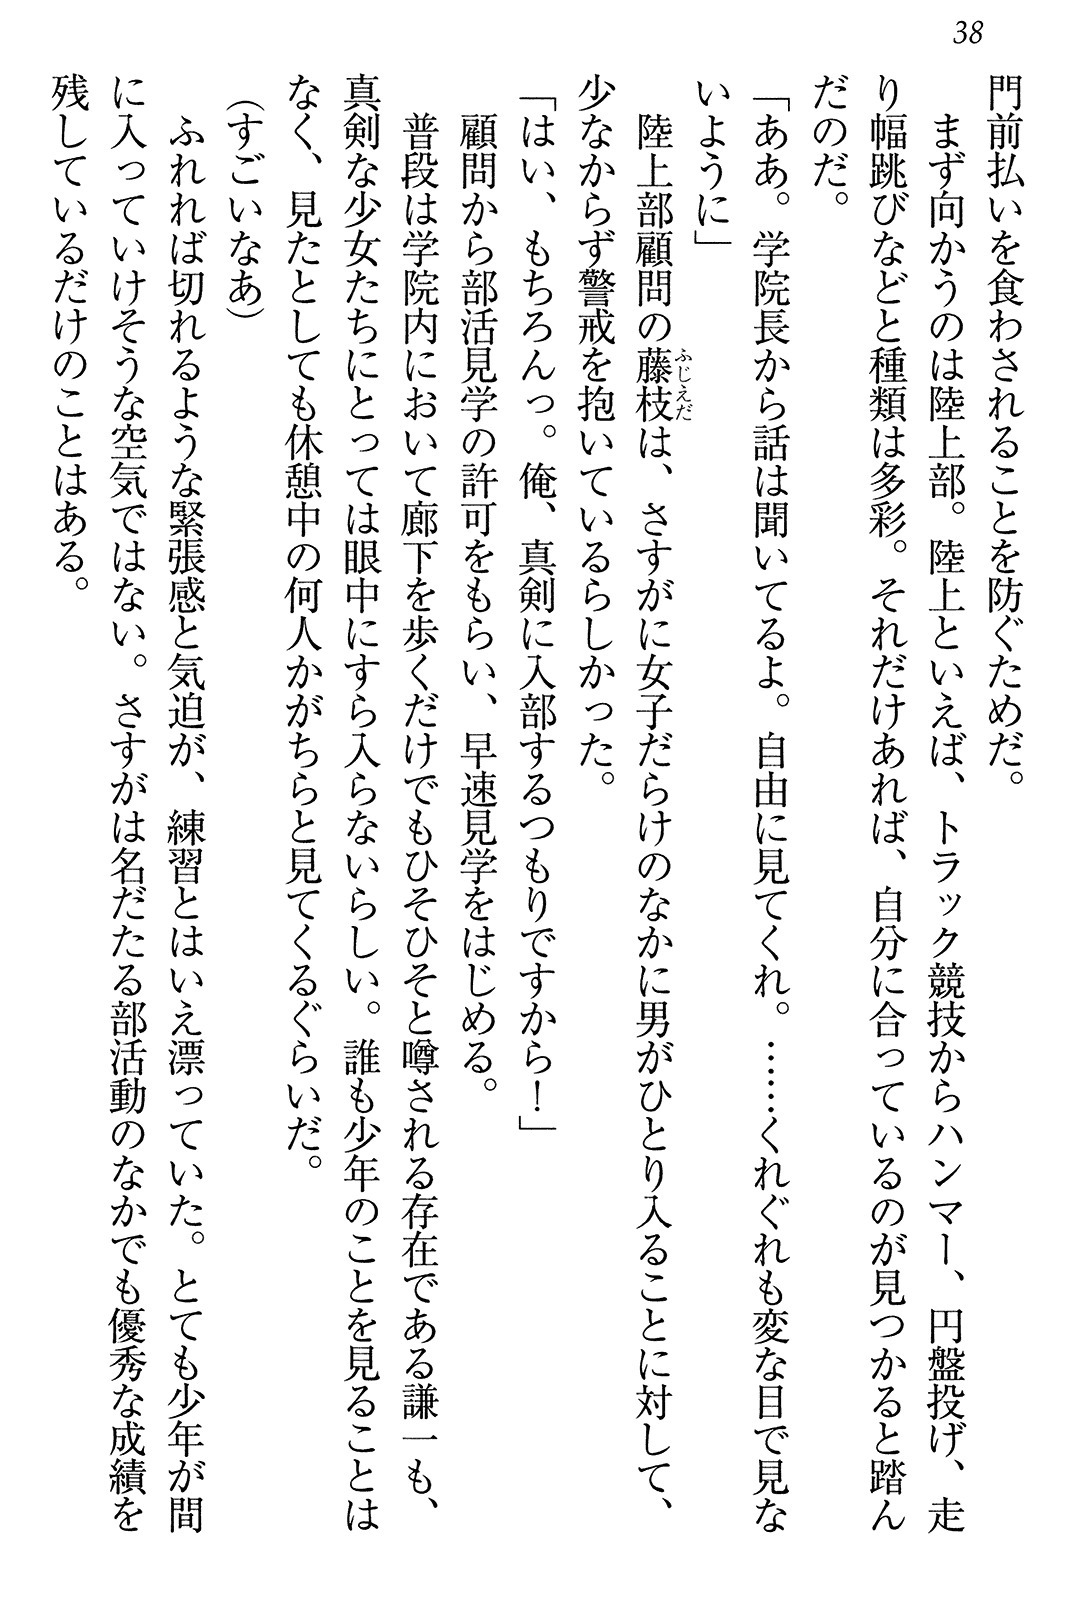 38
門前払いを食わされることを防ぐためだ。
　まず向かうのは陸上部。陸上といえば、トラック競技からハンマー、円盤投げ、走
り幅跳びなどと種類は多彩。それだけあれば、自分に合っているのが見つかると踏ん
だのだ。
「ああ。学院長から話は聞いてるよ。自由に見てくれ。……くれぐれも変な目で見な
いように」
　陸上部顧問の藤枝は、さすがに女子だらけのなかに男がひとり入ることに対して、
ふじえだ
少なからず警戒を抱いているらしかった。
「はい、もちろんっ。俺、真剣に入部するつもりですから！」
　顧問から部活見学の許可をもらい、早速見学をはじめる。
　普段は学院内において廊下を歩くだけでもひそひそと噂される存在である謙一も、
真剣な少女たちにとっては眼中にすら入らないらしい。誰も少年のことを見ることは
なく、見たとしても休憩中の何人かがちらと見てくるぐらいだ。
（すごいなあ）
　ふれれば切れるような緊張感と気迫が、練習とはいえ漂っていた。とても少年が間
に入っていけそうな空気ではない。さすがは名だたる部活動のなかでも優秀な成績を
残しているだけのことはある。